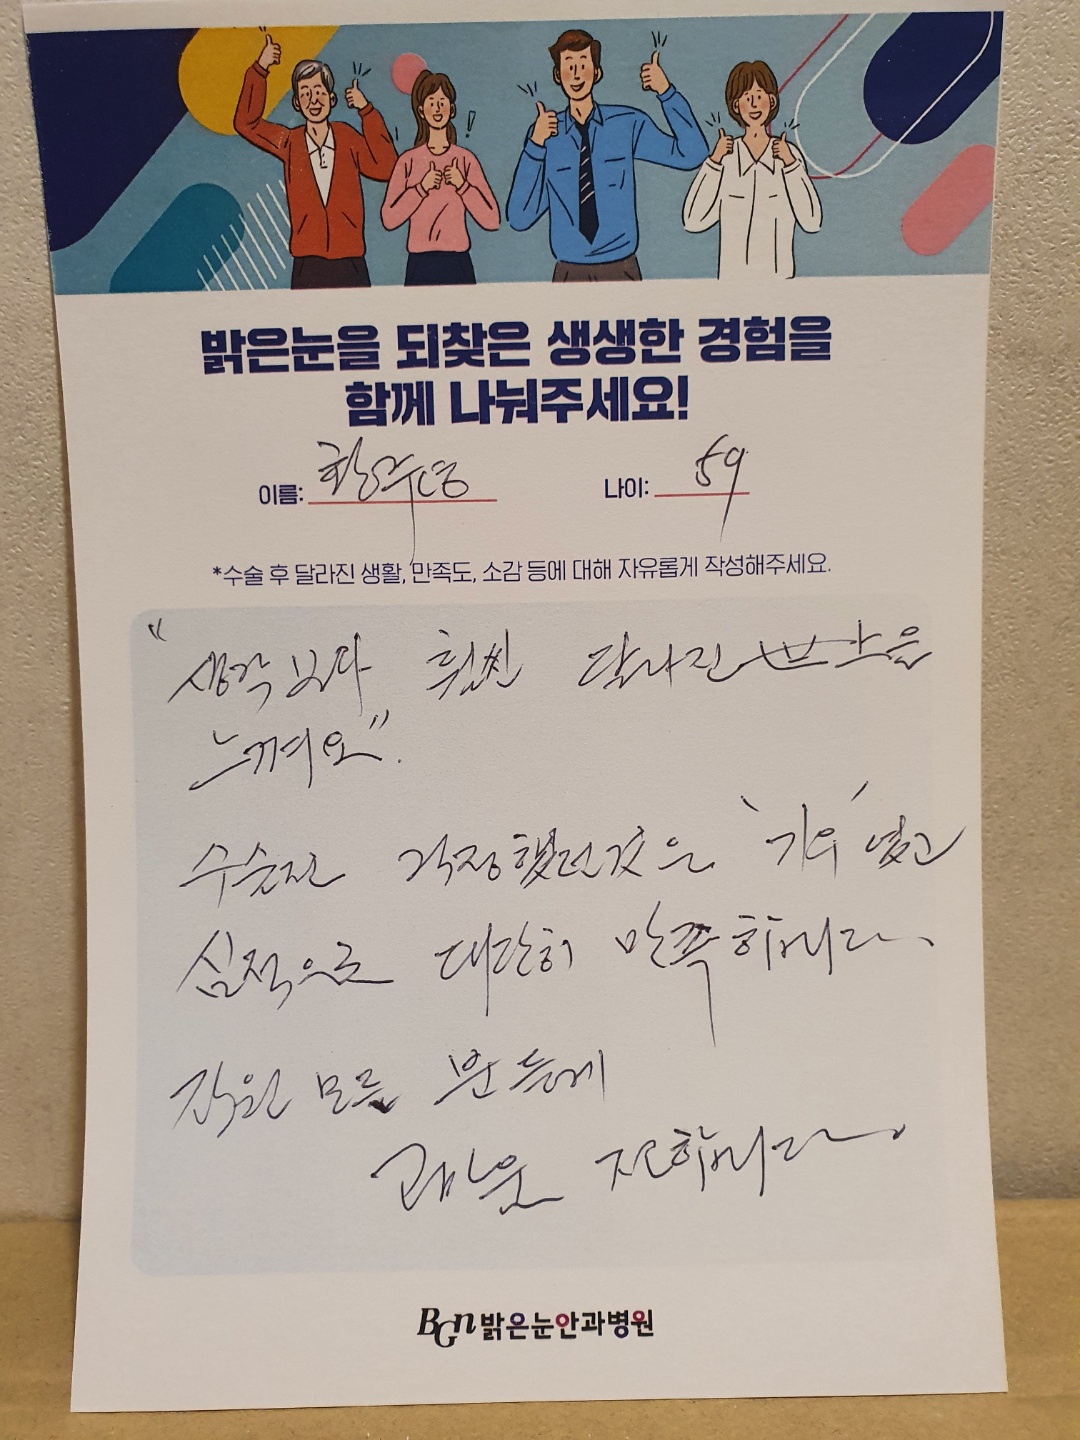 밝은눈을 되찾은 생생한 경험을
함께 나눠주세요!
이름: 나이: 59
*수술 후 달라진 생활, 만족도, 소감 등에 대해 자유롭게 작성해주세요.
"생각보다 훨씬 달라진 世上을
느껴요".
수술전 걱정했던것은 '기우'였고
심적으로 대단히 만족합니다.
직원 모든 분들께
고마움 전합니다.
BGn밝은눈안과병원